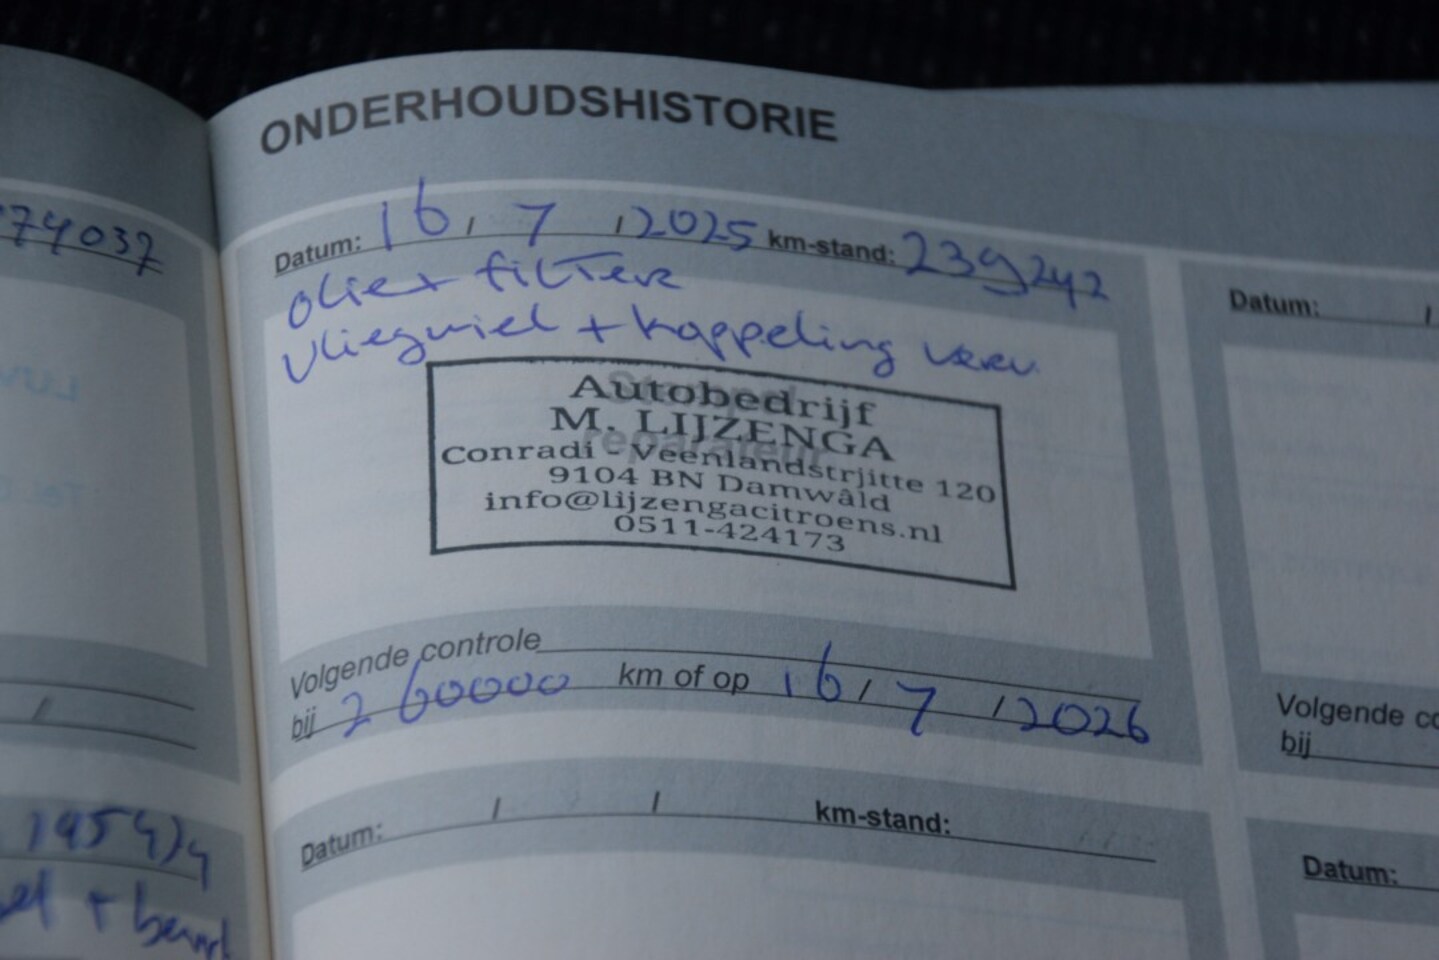 ONDERHOUDSHISTORIE
74037
Datum: 16 / 7 / 2025 km-stand: 239242
olie + filters
vliegwiel + koppeling verv
Stempel
reparateur
Autobedrijf
M. LIJZENGA
Conradi - Veenlandstrjitte 120
9104 BN Damwâld
info@lijzengacitroens.nl
0511-424173
Volgende controle
bij 260000 km of op 16 / 7 / 2026
Datum: / / km-stand:
Datum: /
Volgende co
bij
Datum:
/